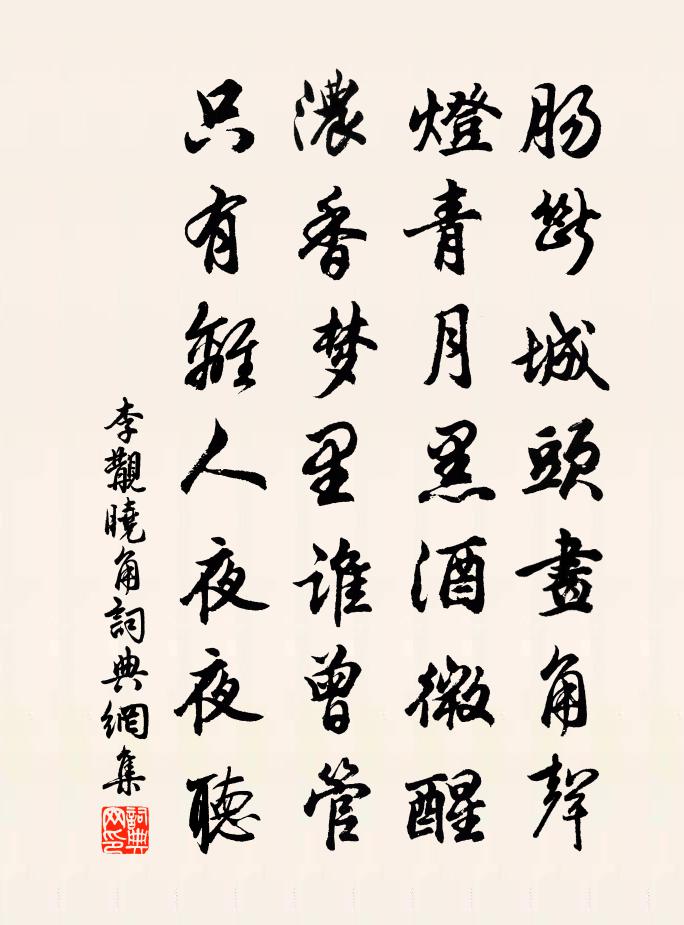 腸斷城頭畫角聲
燈青月黑酒微醒
濃香梦里誰曾管
只有離人夜夜聽
李覯曉角詞典網集
詞典网印